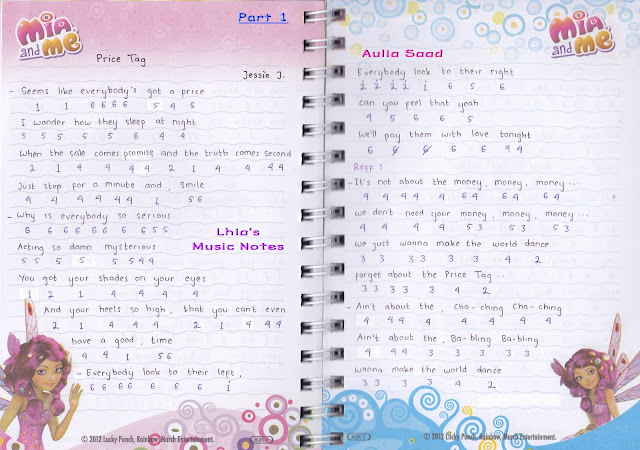 Part 1
Mia and me
Price Tag
Jessie J.
- Seems like everybody's got a price
1 1 6 6 6 6 5 4 5
I wonder how they sleep at night
5 5 5 5 5 6 4 4
When the sale comes promise and the truth comes second
2 1 4 4 4 4 2 1 4 4 4 4
Just stop for a minute and, smile
4 4 4 4 4 4 1 56
- Why is everybody so serious
6 6 6 6 6 6 6 6 5 5
Lhia's
Music Notes
Acting so damn mysterious
5 5 5 5 5 5 4 4
You got your shades on your eyes
1 2 1 4 4 4 4
And your heels so high, that you can't even
2 1 4 4 4 4 2 1 4 4 4
have a good, time
4 4 1 56
- Everybody look to their left,
6 6 6 6 6 6 6 i
© 2012 Lucky Punch, Rainbow, March Entertainment.
KKY
Mia and me
Aulia Saad
Everybody look to their right
2 2 2 2 i 6 5 6
can you feel that yeah
4 5 6 6 5
We'll pay them with love tonight
6 6 6 4 4
Reff :
- It's not about the money, money, money ...
4 4 4 4 4 64 64 64
we don't need your money, money, money ...
4 4 4 4 53 53 53
we just wanna make the world dance
3 3 3 3 3 3 4 2
forget about the Price Tag ...
3 3 3 3 3 4 2
- Ain't about the, Cha-ching Cha-ching
4 44 4 4 4 4 4
Ain't about the, Ba-bling Ba-bling
4 44 3 3 3 3 3
wanna make the world dance
3 3 3 3 4 2
© 2012 Lucky Punch, Rainbow, March Entertainment.
KKY